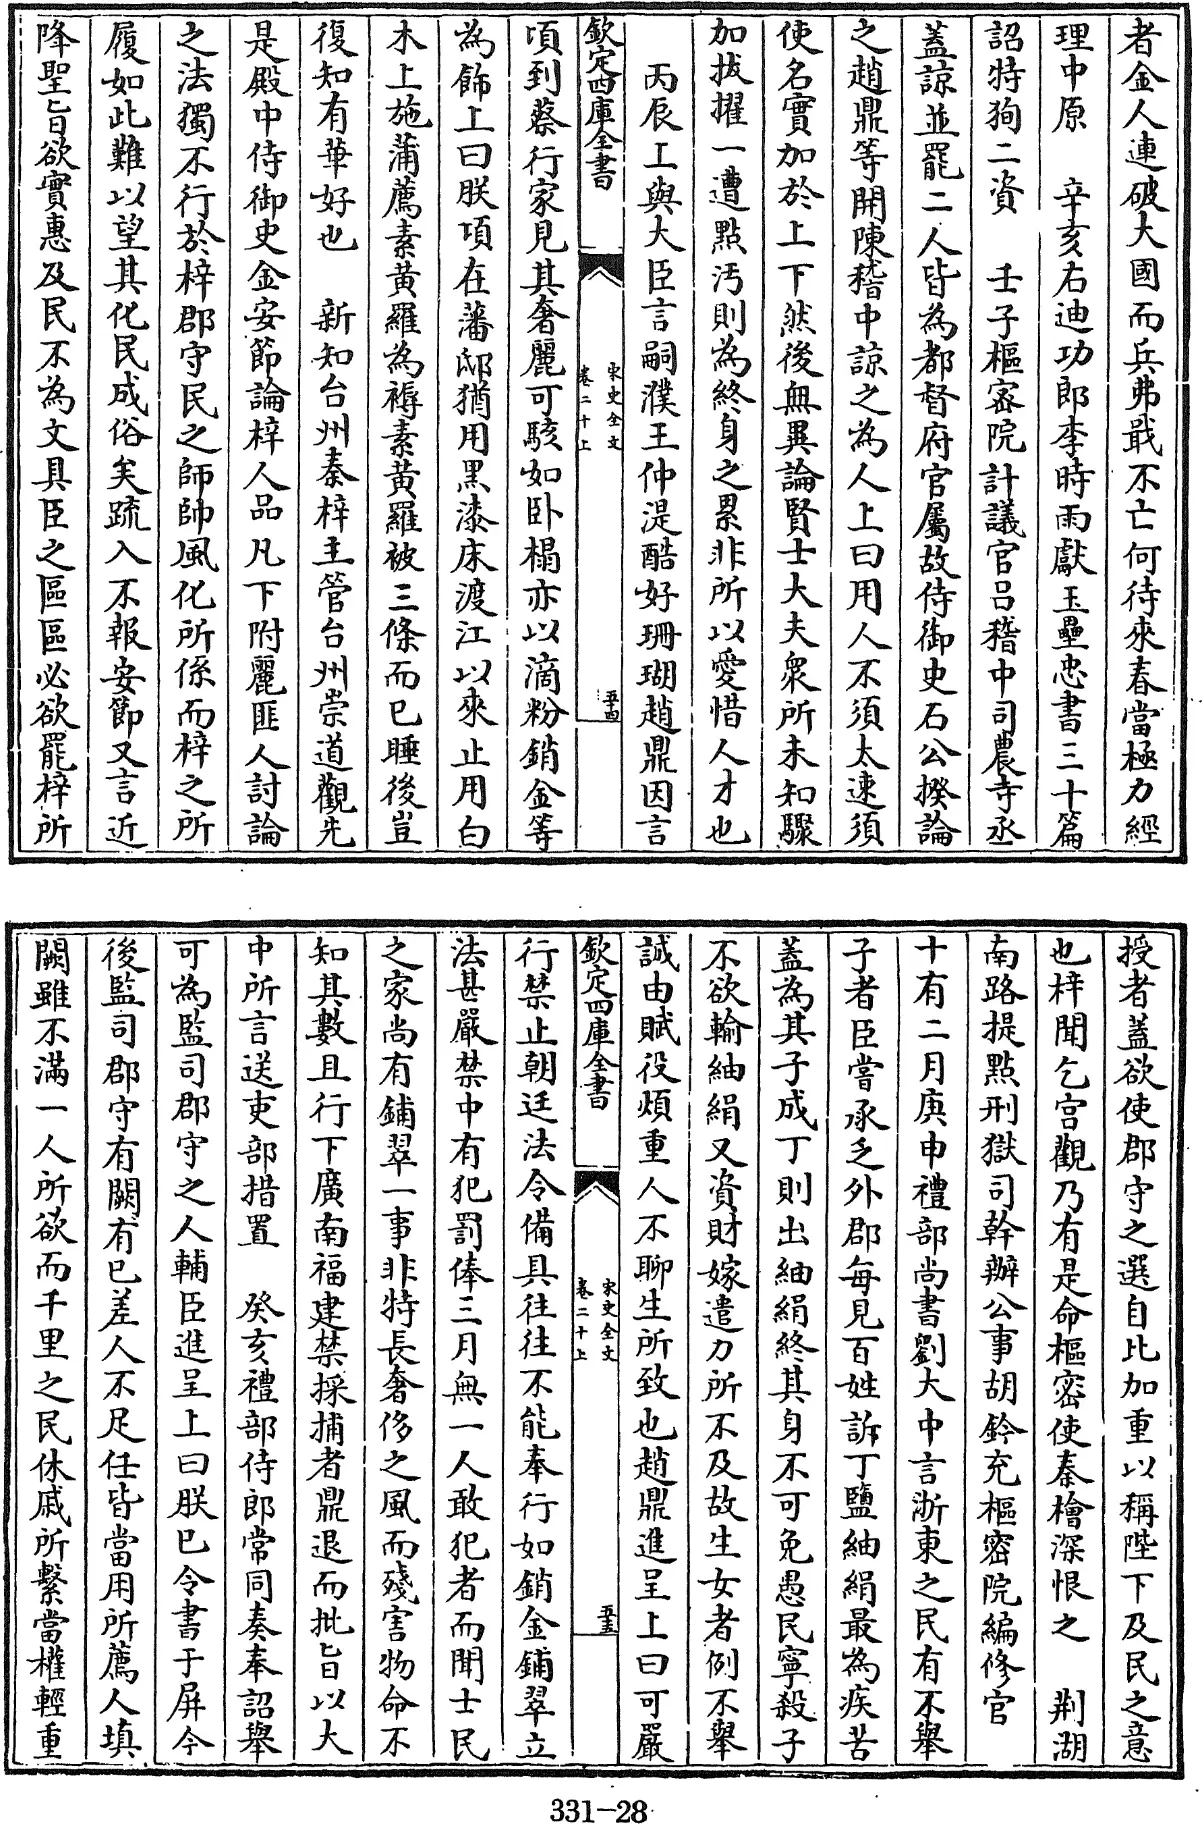 者金人連破大國而兵弗戢不亡何待來春當極力經
理中原　辛亥右迪功郎李時雨獻玉壘忠書三十篇
詔特狥二資　壬子樞密院計議官呂稽中司農寺丞
蓋諒並罷二人皆為都督府官屬故侍御史石公揆論
之趙鼎等開陳稽中諒之為人上曰用人不須太速須
使名實加於上下然後無異論賢士大夫衆所未知驟
加拔擢一遭點汚則為終身之累非所以愛惜人才也
丙辰上與大臣言嗣濮王仲湜酷好珊瑚趙鼎因言
欽定四庫全書
宋史全文
卷二十上
五十四
頃到蔡行家見其奢麗可駭如卧榻亦以滴粉銷金等
為飾上曰朕頃在藩邸猶用黑漆床渡江以來止用白
木上施蒲薦素黃羅為褥素黃羅被三條而已睡後豈
復知有華好也　新知台州秦梓主管台州崇道觀先
是殿中侍御史金安節論梓人品凡下附麗匪人討論
之法獨不行於梓郡守民之師帥風化所係而梓之所
履如此難以望其化民成俗矣疏入不報安節又言近
降聖旨欲實惠及民不為文具臣之區區必欲罷梓所
授者蓋欲使郡守之選自比加重以稱陛下及民之意
也梓聞乞宫觀乃有是命樞密使秦檜深恨之　荆湖
南路提點刑獄司幹辦公事胡鈴充樞密院編修官
十有二月庚申禮部尚書劉大中言浙東之民有不舉
子者臣嘗承乏外郡每見百姓訴丁鹽紬絹最為疾苦
蓋為其子成丁則出紬絹終其身不可免愚民寧殺子
不欲輸紬絹又資財嫁遣力所不及故生女者例不舉
誠由賦役煩重人不聊生所致也趙鼎進呈上曰可嚴
欽定四庫全書
宋史全文
卷二十上
五十五
行禁止朝廷法令備具往往不能奉行如銷金鋪翠立
法甚嚴禁中有犯罰俸三月無一人敢犯者而聞士民
之家尚有鋪翠一事非特長奢侈之風而殘害物命不
知其數且行下廣南福建禁採捕者鼎退而批旨以大
中所言送吏部措置　癸亥禮部侍郎常同奏奉詔舉
可為監司郡守之人輔臣進呈上曰朕已令書于屏今
後監司郡守有闕有已差人不足任皆當用所薦人填
闕雖不滿一人所欲而千里之民休戚所繫當權輕重
331-28